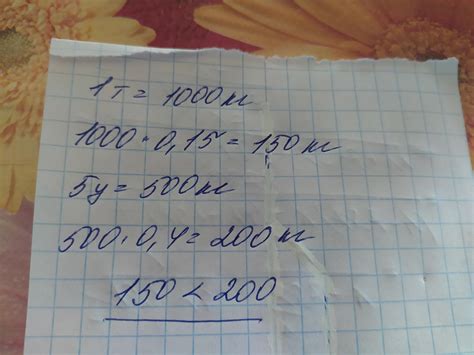 1т = 1000кг
1000 · 0,15 = 150кг
5ц = 500кг
500 · 0,4 = 200кг
150 < 200